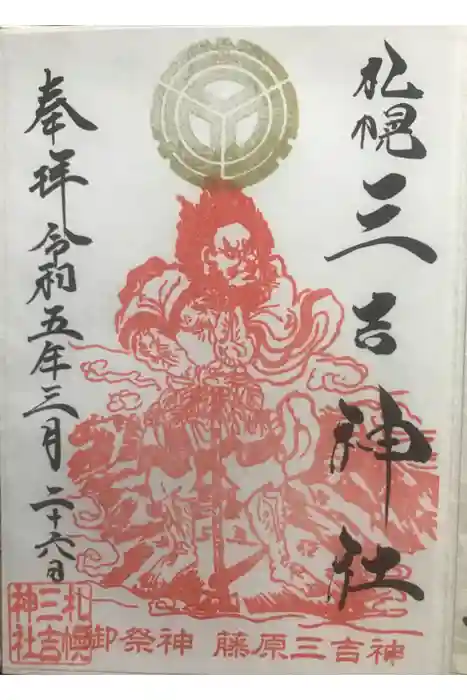 札幌三吉神社
奉拝 令和五年三月二十六日
御祭神 藤原三吉神
札幌
三吉
神社